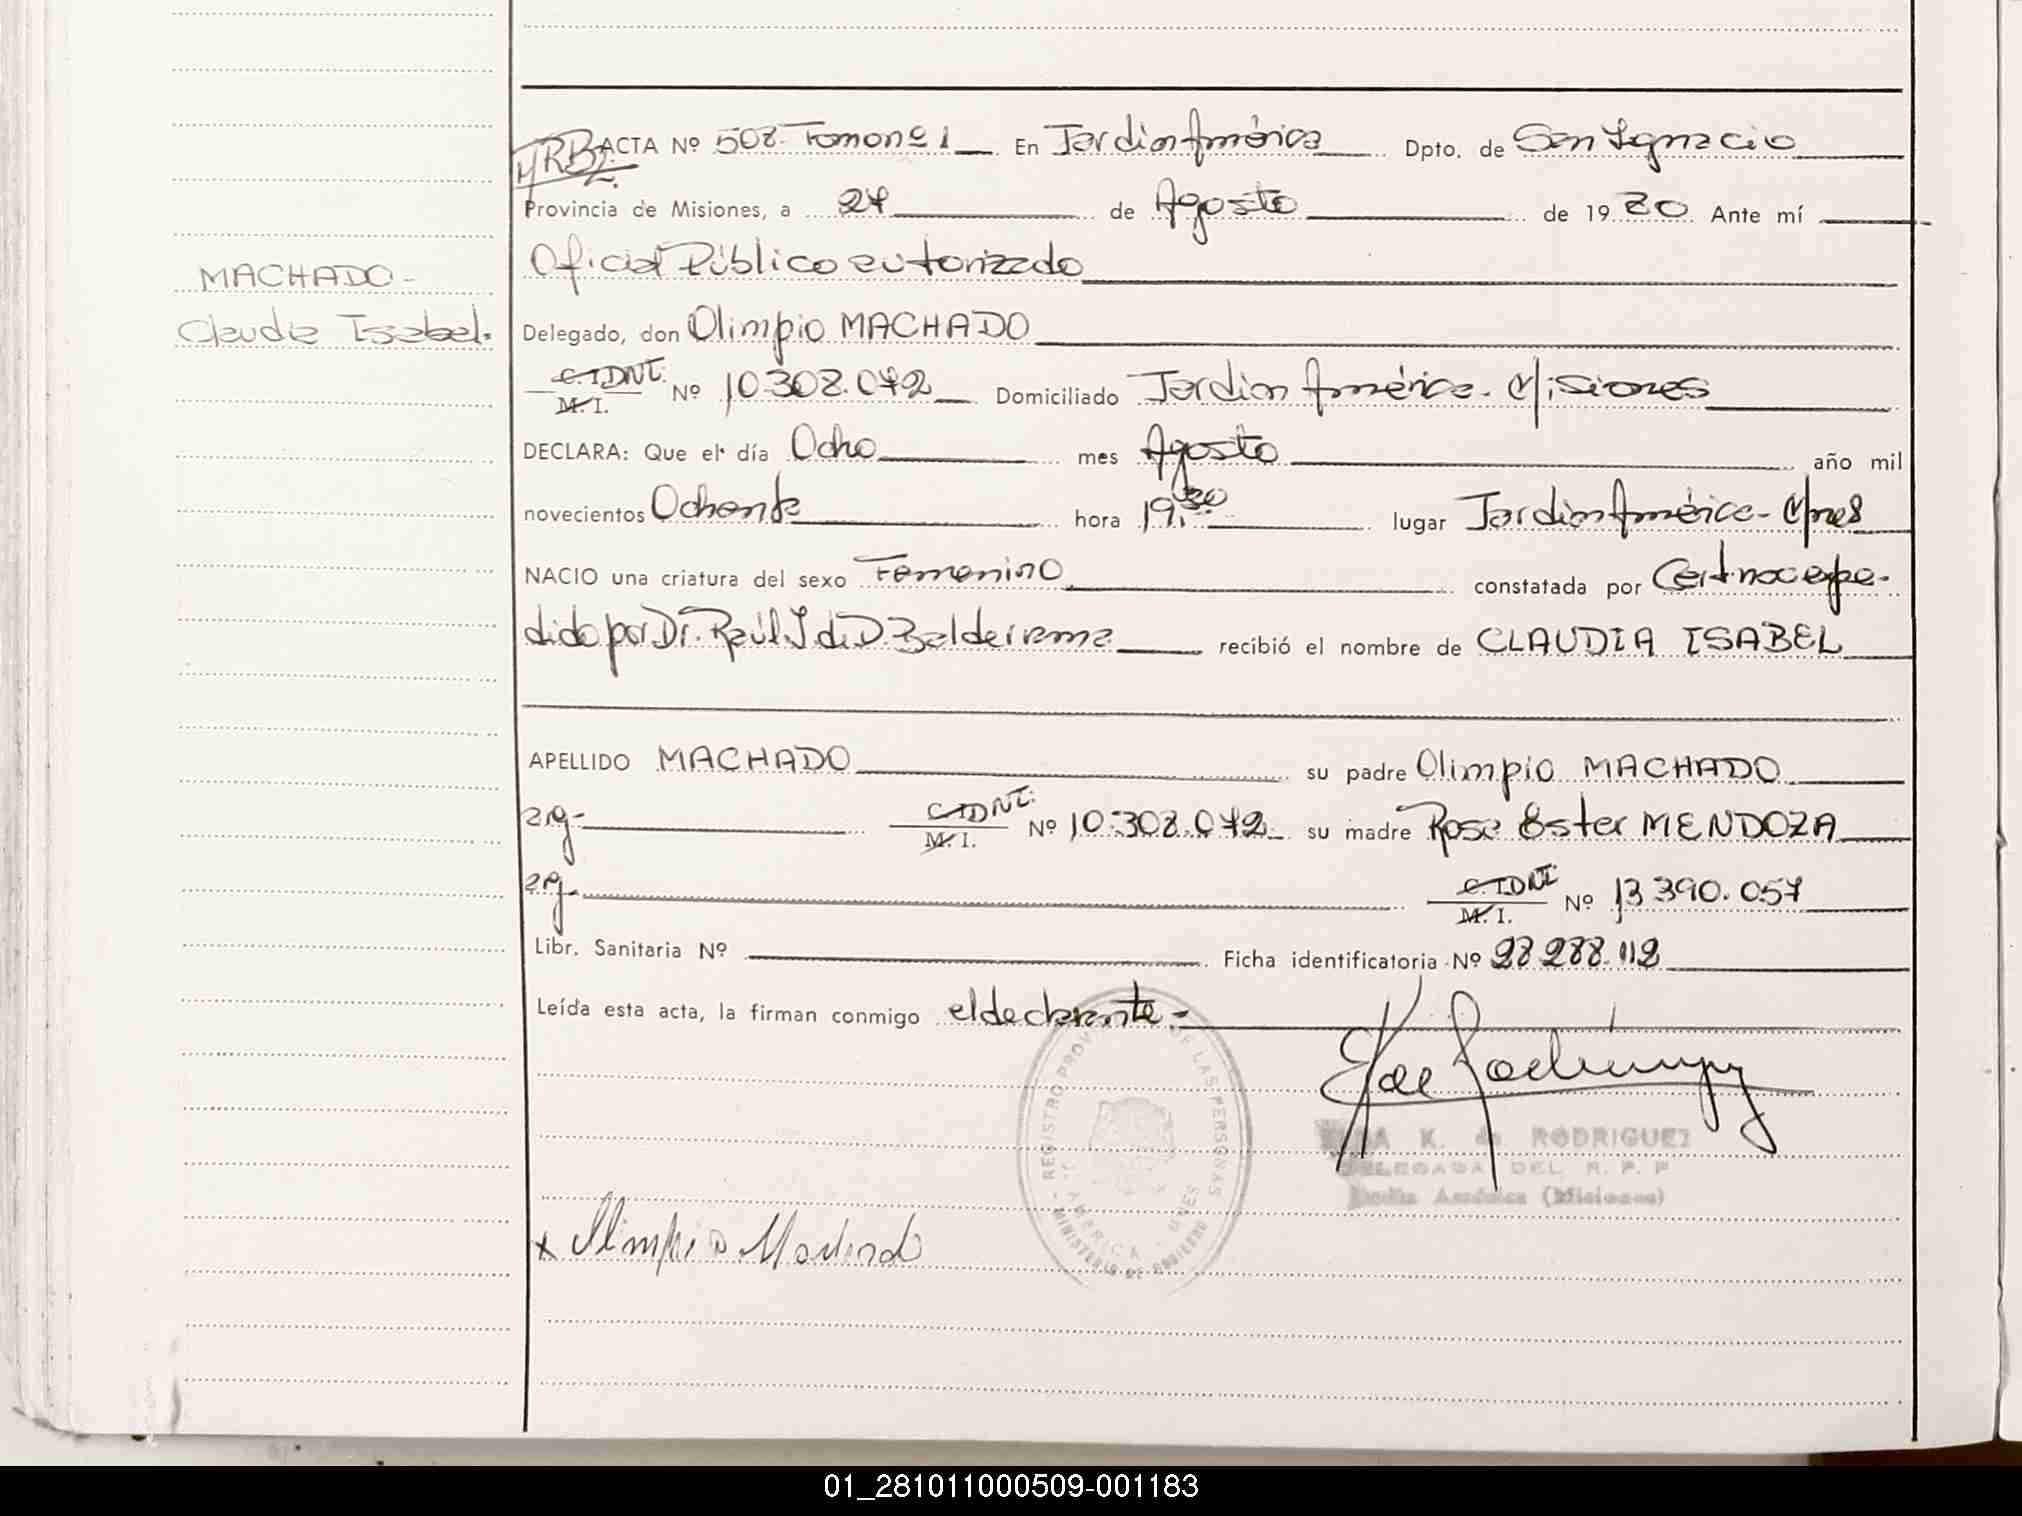 ACTA Nº 508 Tomo nº 1 En Jardin América Dpto. de San Ignacio
Provincia de Misiones, a 27 de Agosto de 1980 Ante mí
Oficial Público autorizado
MACHADO -
Claudia Isabel.
Delegado, don Olimpio MACHADO
C. I. DNI. M. I. Nº 10.308.072 Domiciliado Jardin América - Misiones
DECLARA: Que el día Ocho mes Agosto año mil
novecientos Ochenta hora 19,30 lugar Jardin América - Mnes
NACIO una criatura del sexo Femenino constatada por Cert. nac expe-
dido por Dr. Raúl J. de D. Balderrama recibió el nombre de CLAUDIA ISABEL
APELLIDO MACHADO su padre Olimpio MACHADO
arg- C. I. DNI. M. I. Nº 10.308.072 su madre Rosa Ester MENDOZA
arg- C. I. DNI M. I. Nº 13.390.057
Libr. Sanitaria Nº Ficha identificatoria Nº 28.288.112
Leída esta acta, la firman conmigo el declarante -
REGISTRO DE LAS PERSONAS
AMERICA - MNES
MINISTERIO DE GOBIERNO
K. de RODRIGUEZ
DELEGADA DEL R. P. P
Jardín América (Misiones)
x Olimpio Machado
01_281011000509-001183